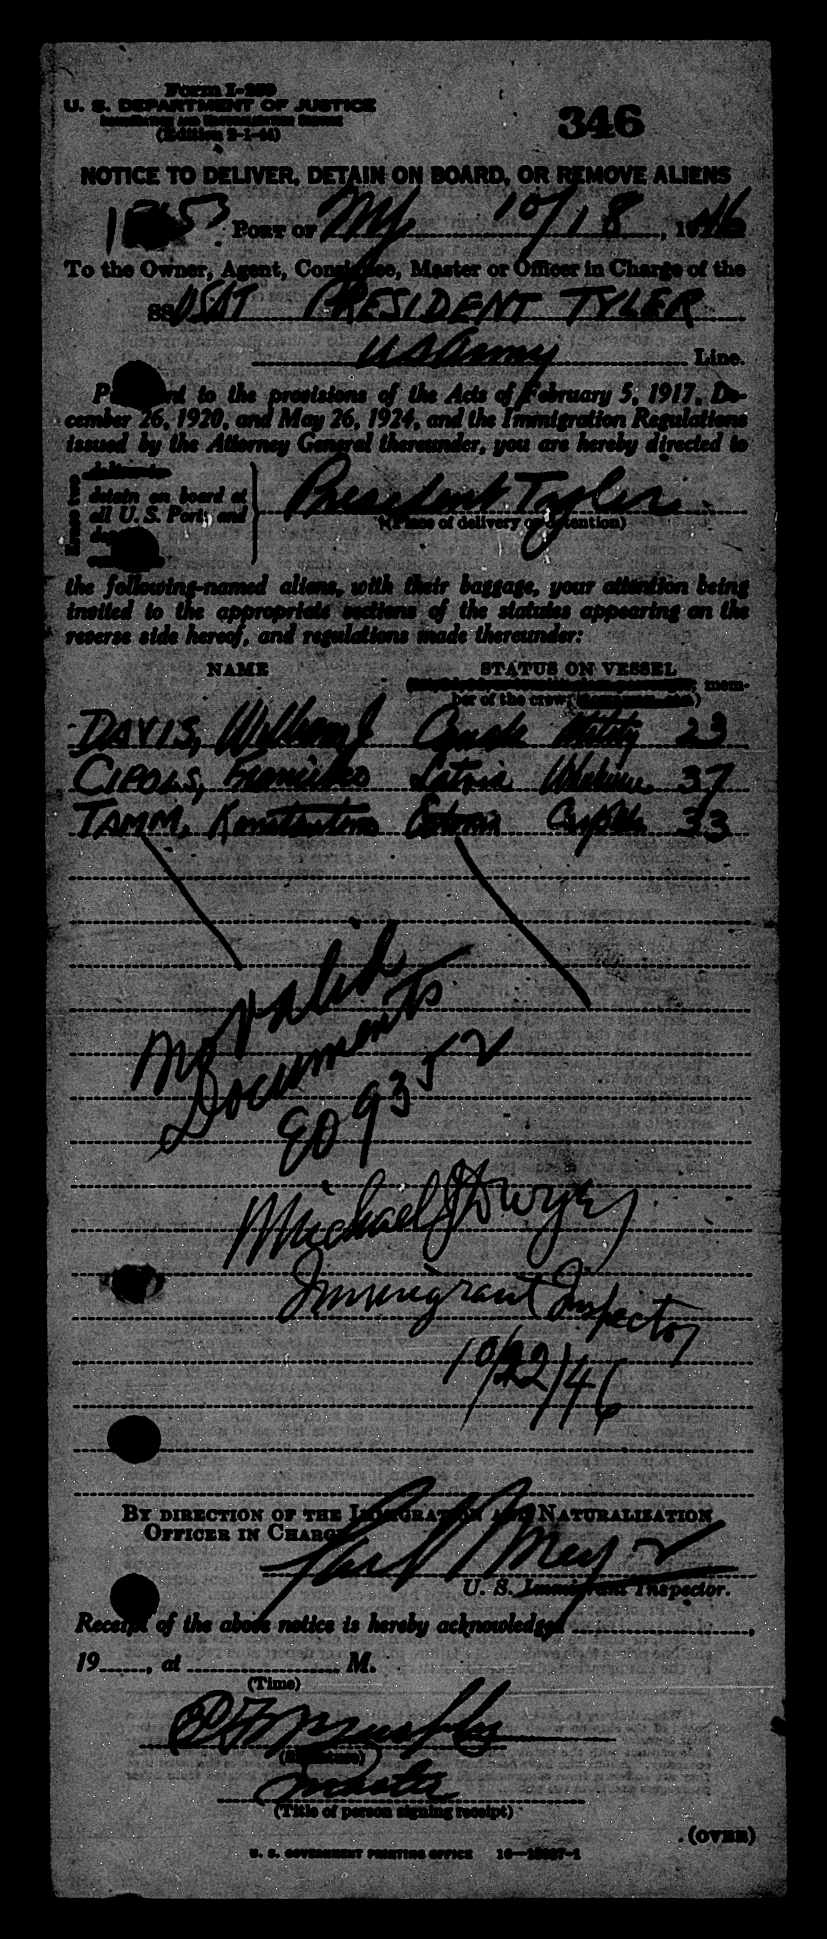 Form I-259
U. S. DEPARTMENT OF JUSTICE
IMMIGRATION AND NATURALIZATION SERVICE
(Edition 2-1-44)
346
NOTICE TO DELIVER, DETAIN ON BOARD, OR REMOVE ALIENS
PORT OF NY 10/18, 1946
To the Owner, Agent, Consignee, Master or Officer in Charge of the
SS USAT PRESIDENT TYLER
US Army Line.
Pursuant to the provisions of the Acts of February 5, 1917, De-
cember 26, 1920, and May 26, 1924, and the Immigration Regulations
issued by the Attorney General thereunder, you are hereby directed to
detain on board at
all U. S. Ports and
President Tyler
(Place of delivery or detention)
the following-named aliens, with their baggage, your attention being
invited to the appropriate sections of the statutes appearing on the
reverse side hereof, and regulations made thereunder:
NAME STATUS ON VESSEL
mem-
ber of the crew
DAVIS, William J Canada Utility 23
CIPOLS, Francisko Latvia 37
TAMM, Konstantin Estonia 33
No valid
Documents
EO 9352
Michael J Dwyer
Immigrant Inspector
10/22/46
BY DIRECTION OF THE IMMIGRATION AND NATURALIZATION
OFFICER IN CHARGE
U. S. Immigrant Inspector.
Receipt of the above notice is hereby acknowledged ,
19 , at M.
(Time)
Murphy
(Signature)
Master
(Title of person signing receipt)
(OVER)
U. S. GOVERNMENT PRINTING OFFICE